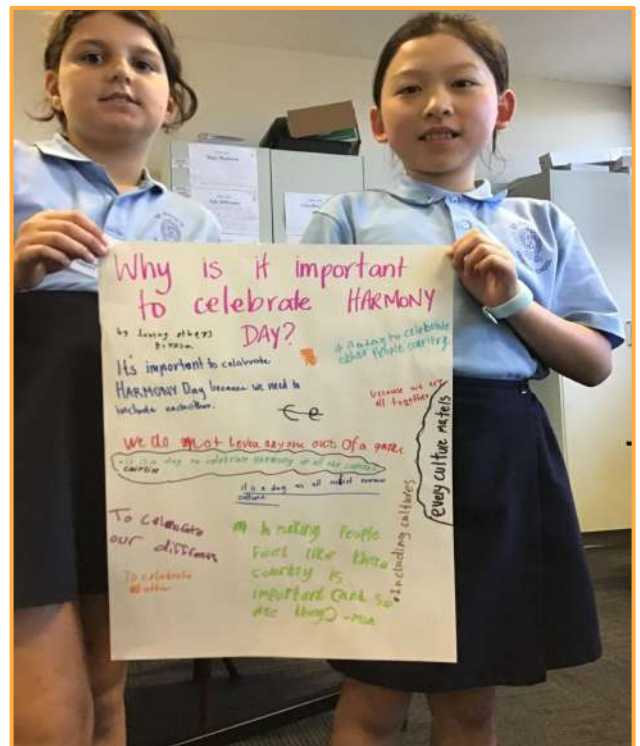 Why is it important
to celebrate HARMONY
DAY?
by loving others
It's important to celabrate
HARMONY Day because we need to
include eachother.
it is a day to celebrate
other People country.
because we are
all together
every culture matels
We do not levea anyone outs of a game
it is a day to celebrate Harmony of all the cultures
it is a day as all
culture
Including cultures
To celebrate
our differens
To celabrate
other
making People
Feel like there
country is
important Cand so
are they) -Mia